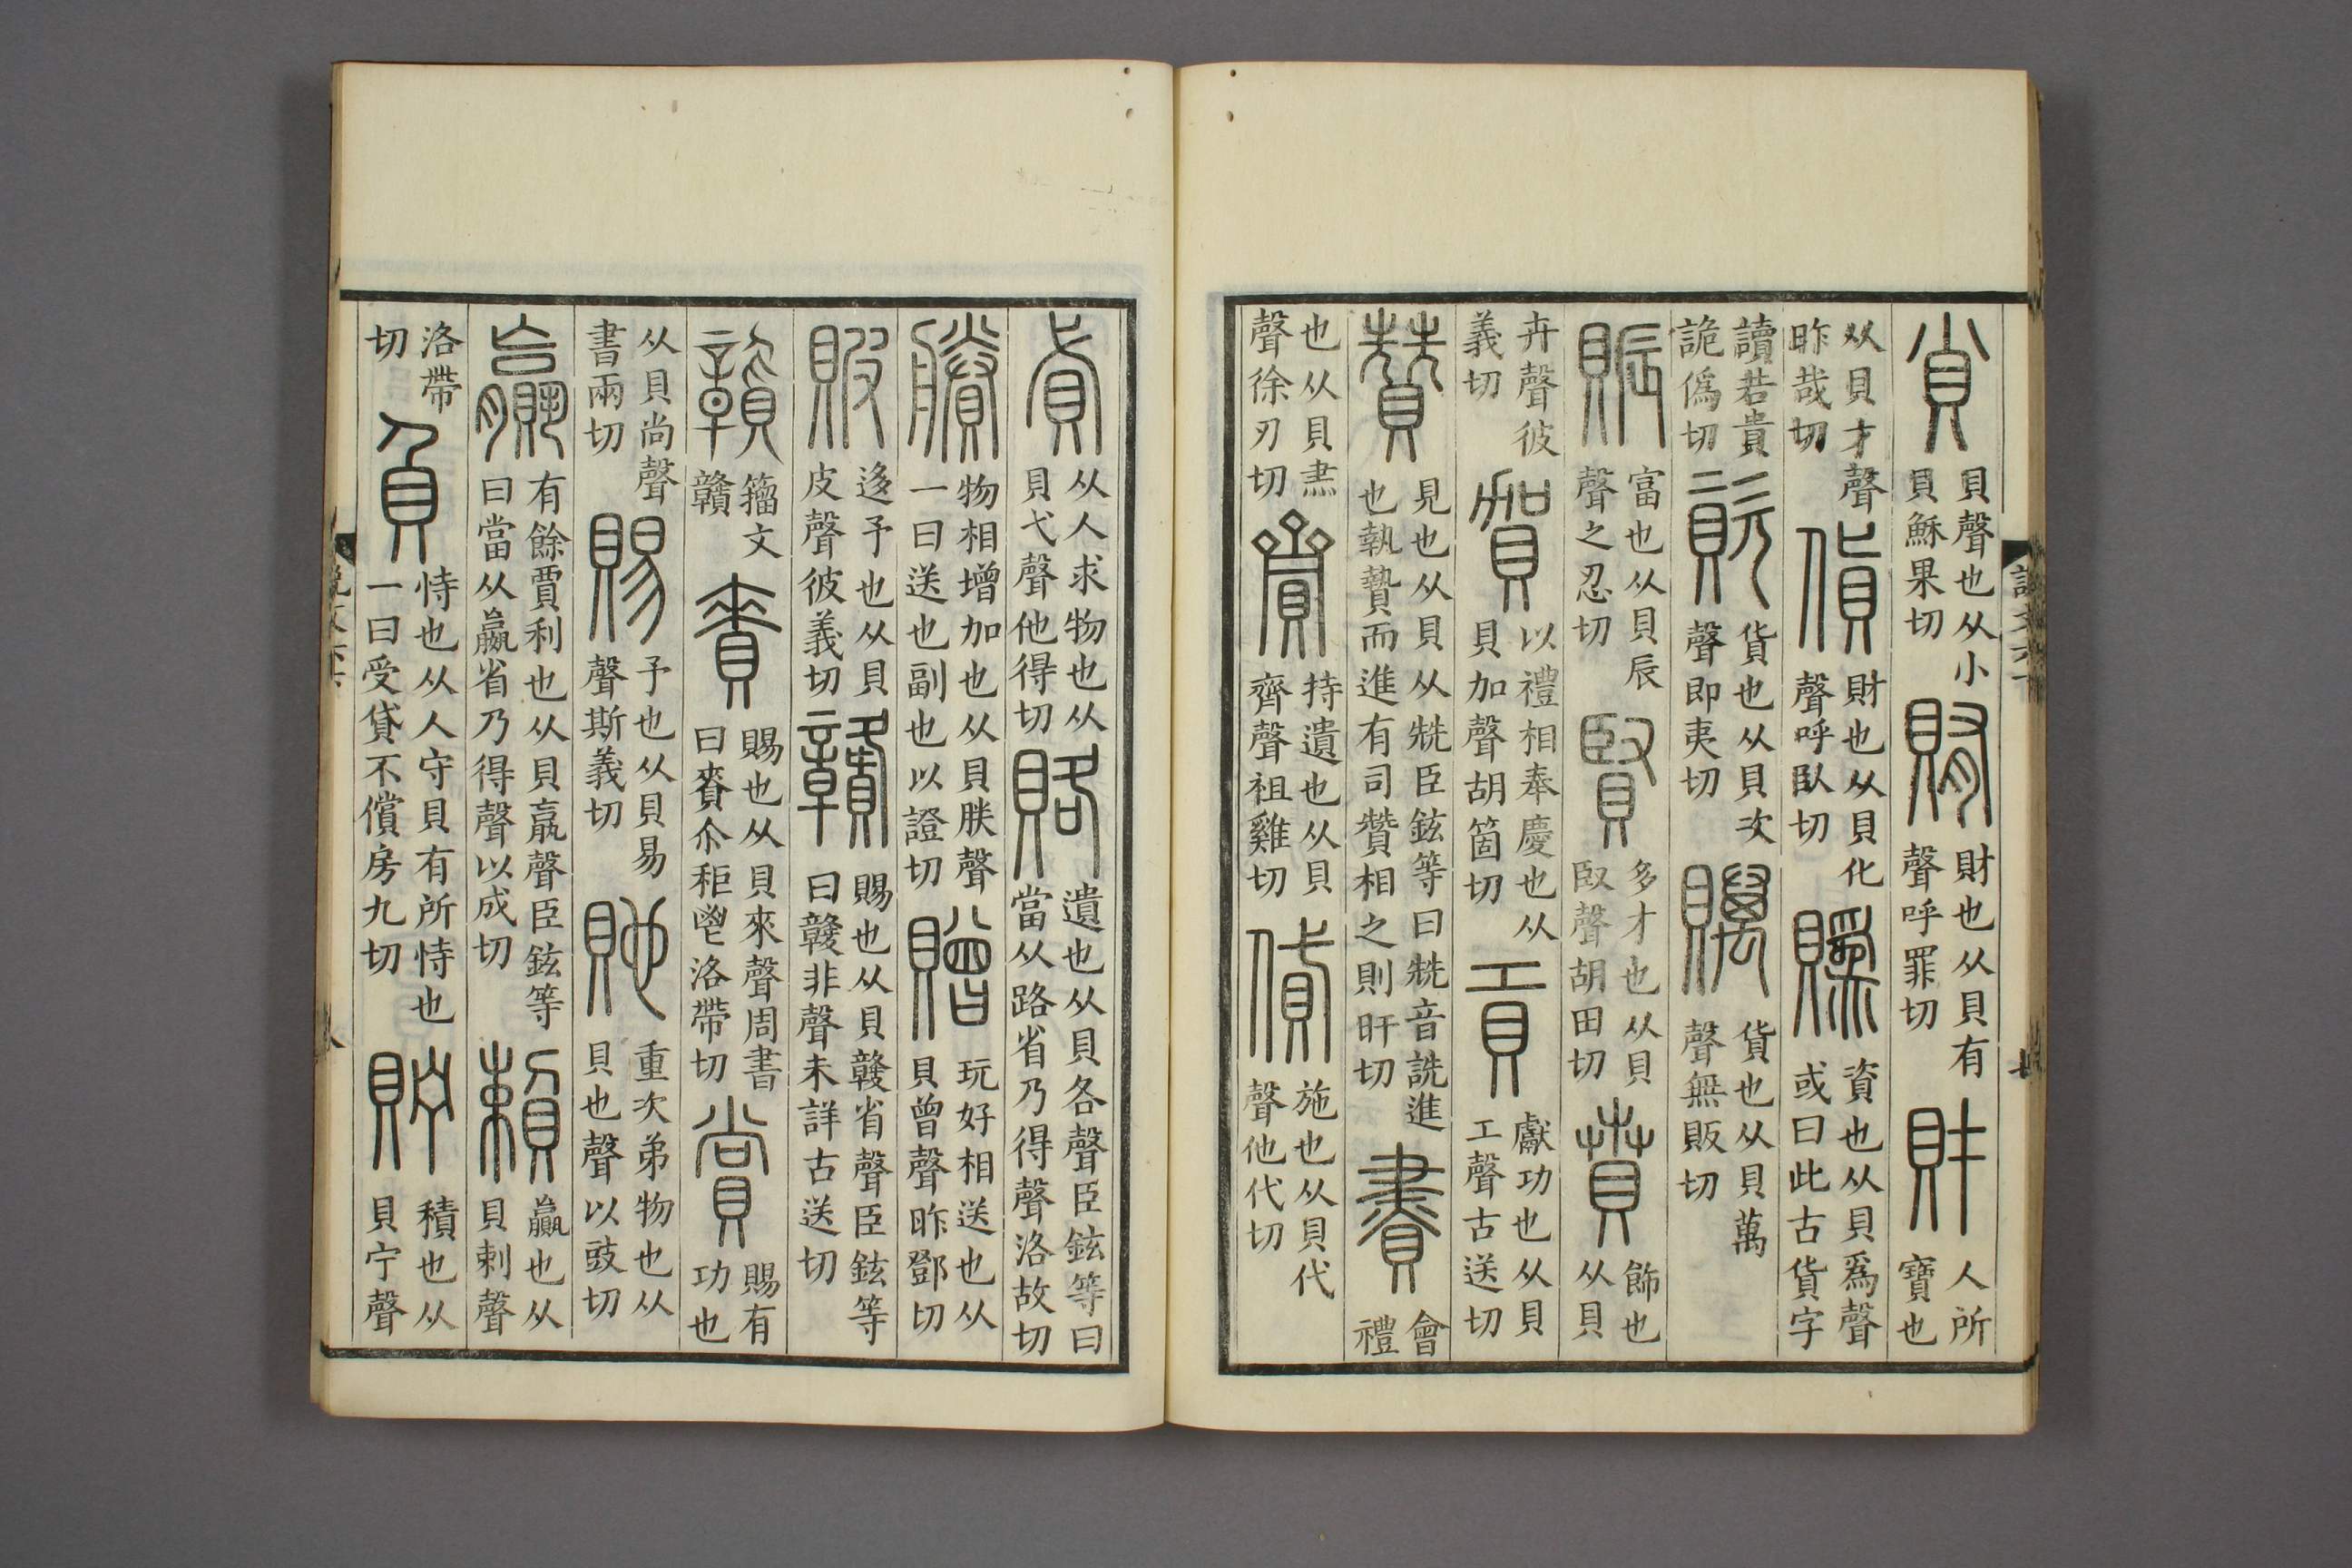 𧴪貝聲也从小貝穌果切賄財也从貝有聲呼罪切財人所寶也
从貝才聲昨哉切貨財也从貝化聲呼臥切䞈資也从貝爲聲或曰此古貨字
讀若貴詭僞切資貨也从貝次聲即夷切𧸘貨也从貝萬聲無販切
賑富也从貝辰聲之忍切賢多才也从貝臤聲胡田切賁飾也从貝
卉聲彼義切賀以禮相奉慶也从貝加聲胡箇切貢獻功也从貝工聲古送切
贊見也从貝从兟臣鉉等曰兟音詵進也執贄而進有司贊相之則旰切賮會禮
也从貝㶳聲徐刃切齎持遺也从貝齊聲祖雞切貸施也从貝代聲他代切
貣从人求物也从貝弋聲他得切賂遺也从貝各聲臣鉉等曰當从路省乃得聲洛故切
賸物相增加也从貝朕聲一曰送也副也以證切贈玩好相送也从貝曾聲昨鄧切
貱迻予也从貝皮聲彼義切贛賜也从貝竷省聲臣鉉等曰竷非聲未詳古送切
籒文贛賚賜也从貝來聲周書曰賚尒秬鬯洛帶切賞賜有功也
从貝尚聲書兩切賜予也从貝易聲斯義切貤重次弟物也从貝也聲以豉切
贏有餘賈利也从貝𣎆聲臣鉉等曰當从嬴省乃得聲以成切賴贏也从貝剌聲
洛帶切負恃也从人守貝有所恃也一曰受貸不償房九切貯積也从貝宁聲